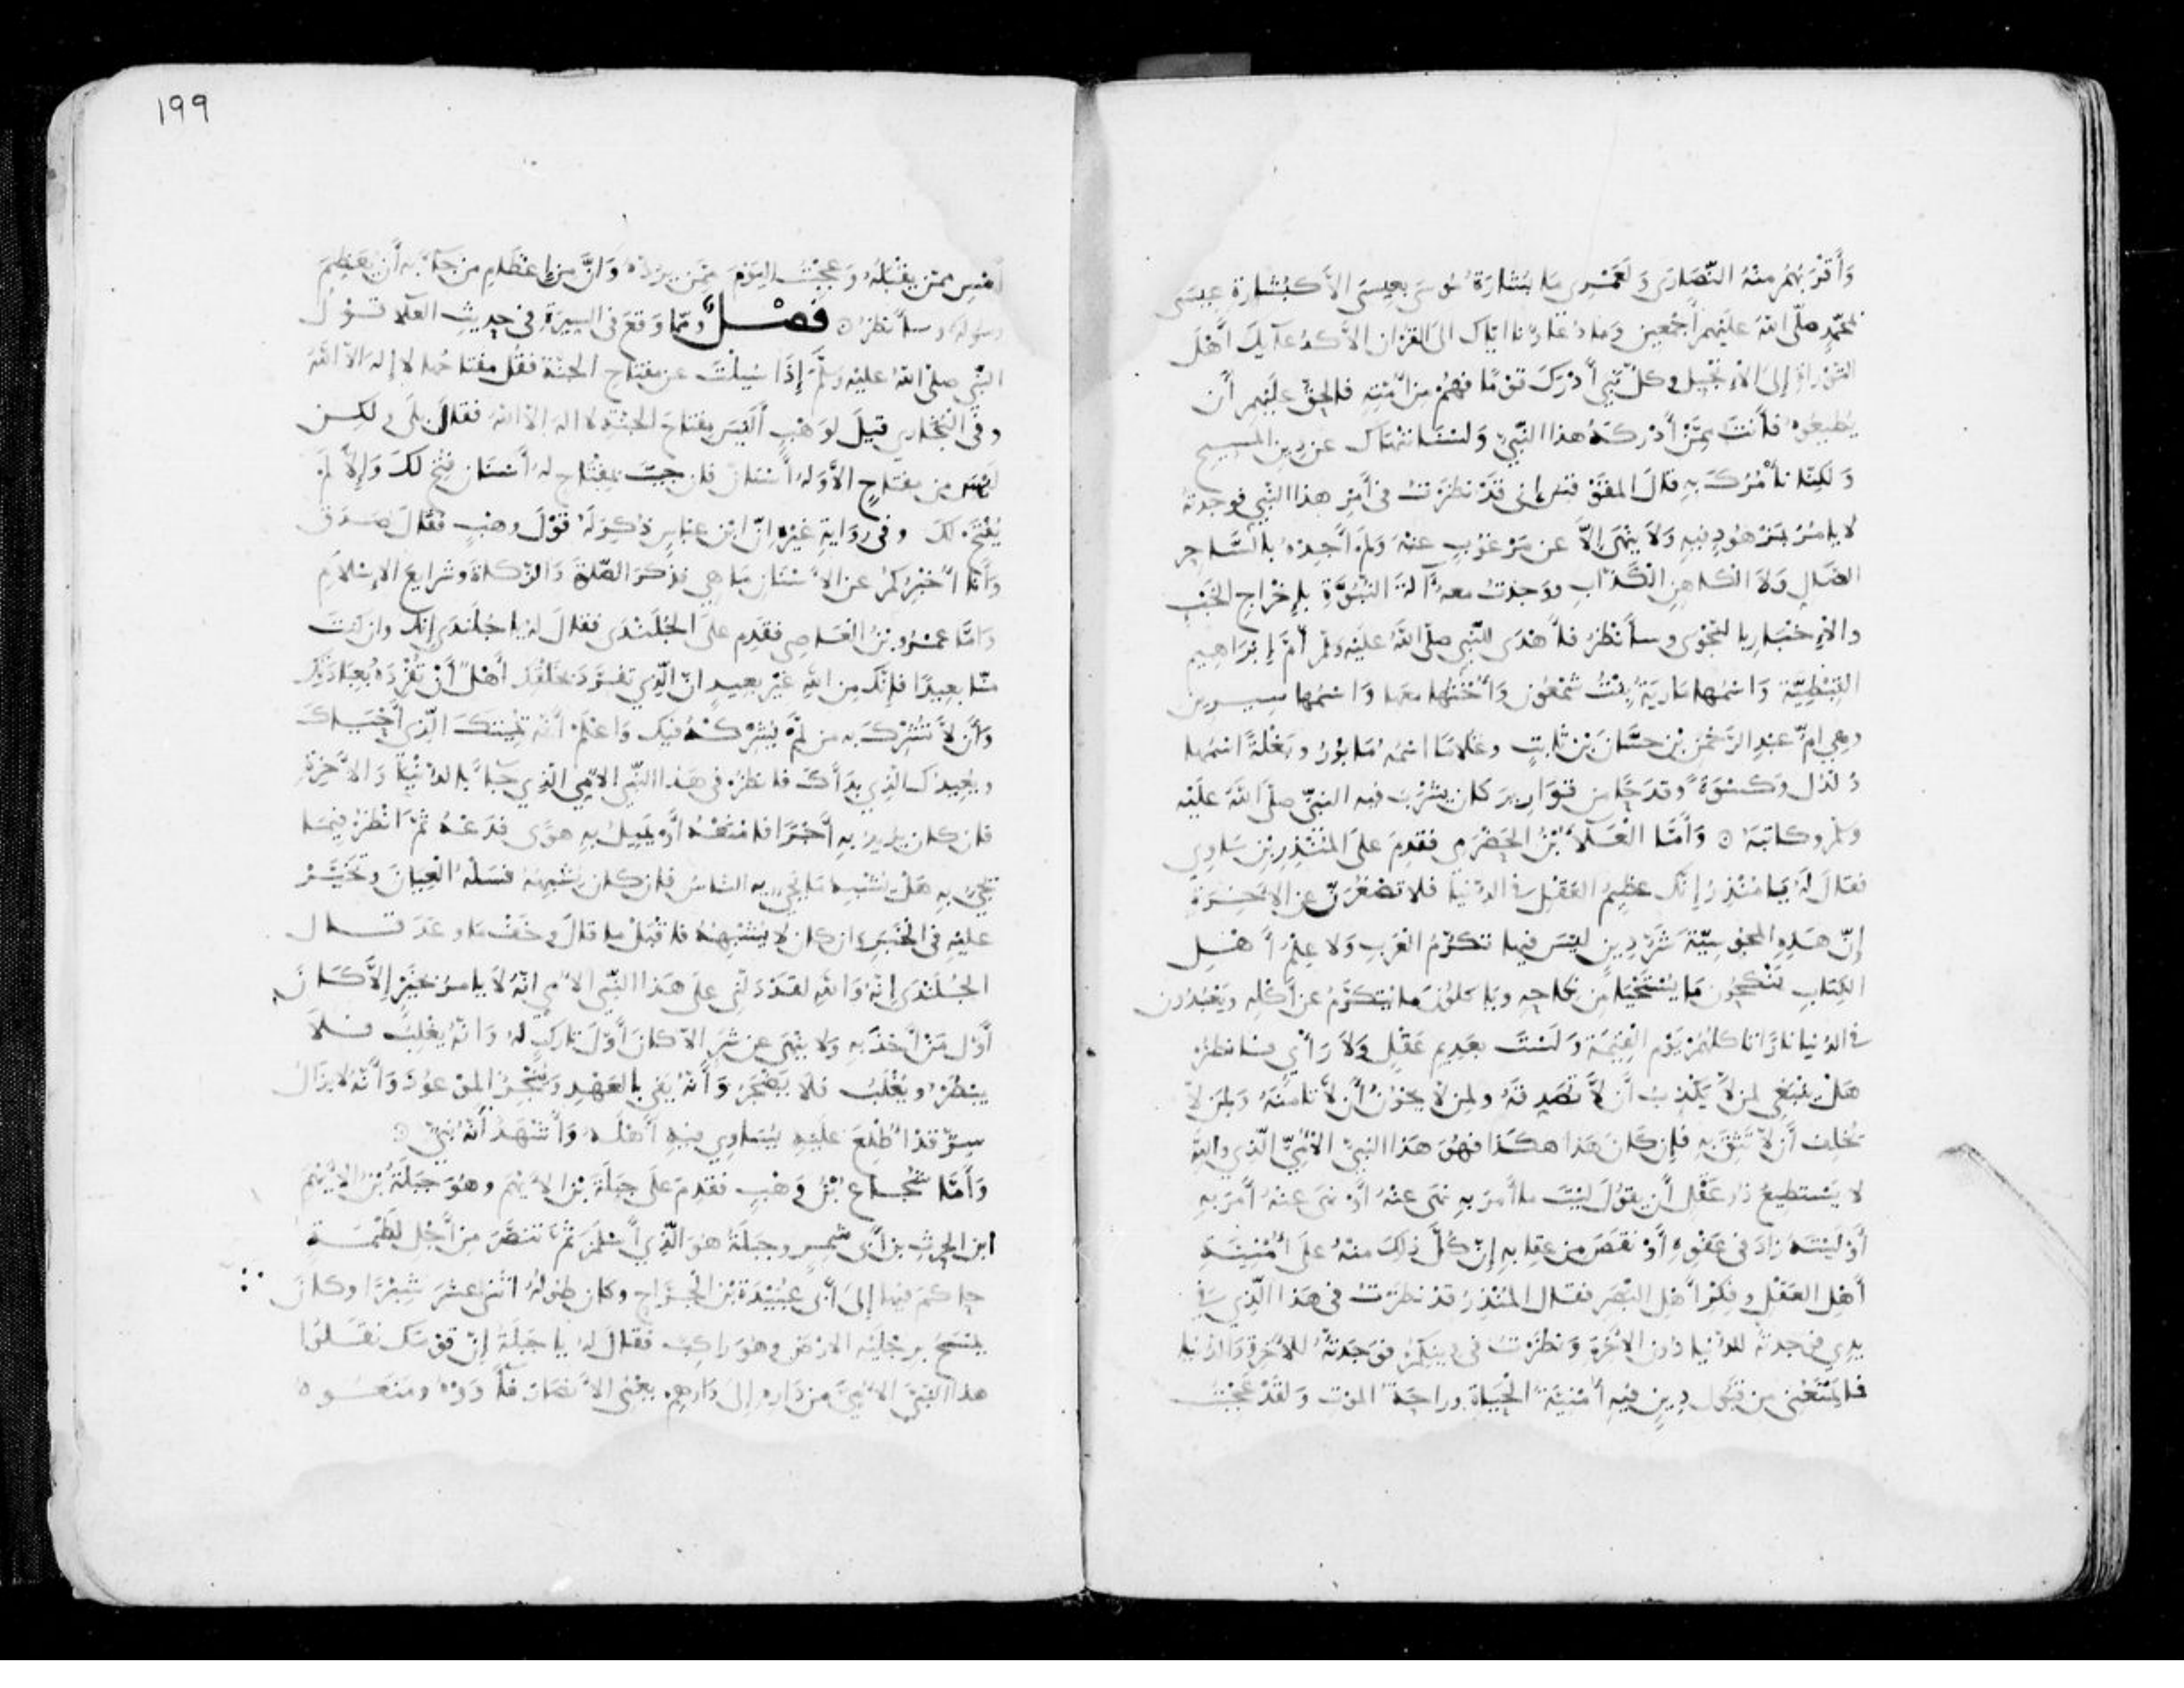 وَأَقْرَبُهُمْ مِنْهُ النَّصَارَى وَلَعَمْرِي مَا بَشَارَةُ مُوسَى بِعِيسَى الاَّ كَبُشَارَةِ عِيسَى
بمُحَمَّدٍ صلّى اللهُ عَلَيْهِمْ أَجْمَعِين وَمَا دُعَاؤُنا ايّاك الى القرْان الاَّ كدُعآيِكَ أَهْلَ
التَّوْرَاةِ إِلَى الأِنْجِيل وكلّ نَبِيٍّ أَدْرَكَ قَوْمًا فهُمْ مِنْ أُمَّتِهِ فالحقّ عَلَيْهِمْ أَن
يُطِيعُوهُ فَأَنْتَ مِمَّنْ أَدْرَكَهُ هذا النَّبِيُّ وَلَسْنَا نَنْهَاك عن دِينِ المَسِيحِ
وَلَكِنَّا نَأْمُرُكَ بِهِ قالَ المقَوْقسُ إنى قَدْ نَظَرْتُ فى أَمْرِ هذا النَّبِي فوجدتهُ
لا يامُرُ بمَزْهُودٍ فيهِ وَلاَ يَنْهَى إلاَّ عن مَرْغُوبٍ عنْهُ وَلَمْ أَجِدْهُ بالسَّاحِرِ
الضَّالِ وَلاَ الكاهِنِ الْكَذَّابِ ووَجدتُ معهُ آلَةَ النُّبُوَّةِ بإِخْرَاجِ الخَبْءِ
والأِخْبَارِ بالنجْوَى وسأَنْظرُ فأَهْدَى للنَّبِي صلّى اللهُ عَلَيْهِ وَسلَّمَ أُمَّ إِبْرَاهِيم
القِبْطِيَّةَ وَاسْمُها مَارِيَةُ بِنْتُ شَمْعُونَ وَأُخْتَهَا معها وَاسْمُها سِيرِين
وهِي امُّ عَبْدِ الرَّحْمنِ بْنِ حسَّانَ بْن ثابتٍ وغُلامًا اسْمُهُ مَابُورُ وبَغْلَةً اسْمُهَا
دُلْدُل وَكسْوَةً وقدحًا من قَوَارِيرَ كان يشْرَبُ فيه النبيّ صلّى اللهُ عَلَيْهِ
وسلّم وكاتبَهُ ۞ وَأَمَّا الْعَلاَءُ بْنُ الحَضْرَمى فقدِمَ عَلَى المُنْذِرِ بْنِ سَاوِي
فقالَ لَهُ يَا مُنْذِرُ إِنَّك عظِيمُ العَقْلِ في الدُّنْيا فلا تَصْغُرَنَّ عنِ الاخِرَةِ
إنَّ هَذِهِ المجُوسِيَّةَ شَرُّ دِينٍ ليْسَ فيهَا تكَرُّمُ العَرَبِ وَلا عِلْمُ أَهْلِ
الكِتَابِ يَنْكِحُونَ مَا يُسْتَحْيَا مِن نكاحِهِ ويَاكلُونَ مَا يُتكَرَّمُ عن أَكْلِهِ وَيَعْبُدُون
في الدُّنيا نارًا تاكلهُمْ يَوْمَ القِيمَةِ وَلَسْتَ بعَدِيمِ عَقْلٍ وَلاَ رَأْيٍ فانظرْ
هَلْ يَنْبَغِي لمنْ لاَ يَكْذِبُ أَنْ لاَّ تُصَدِّقَهُ ولِمن لاَ يخُونُ أَنْ لاَ تامنَهُ وَلِمَنْ لاَ
يُخْلِفُ أَنْ لاَّ تَثِقَ بِهِ فإن كَانَ هَذا هكَذا فهُوَ هَذا النبيُّ الأُمِّيُّ الّذِي واللهِ
لا يَسْتَطِيعُ ذُو عَقْلٍ أَن يقُولَ لَيْتَ ما أَمَرَ بِهِ نَهَى عنْهُ أَوْ نَهَى عَنْهُ أَمَرَ بِهِ
أَوْ لَيْتَهُ زَادَ فى عَفْوِهِ أَوْ نَقَصَ مِن عِقابِهِ إِنَّ كُلَّ ذلِكَ مِنْهُ عَلَى أُمْنِيَّةِ
أَهْلِ العَقْلِ وفِكْرِ أَهْلِ البَصَرِ فَقَالَ المُنْذِرُ قَدْ نظَرْتُ في هَذا الّذِي في
يدِي فوجدتهُ للدُّنْيا دُون الاخِرَةِ وَنظَرْتُ فى دِينِكمْ فوَجَدتُهُ للاخِرَةِ وَالدُّنيا
فَما يَمْنَعُنِي مِن قَبُولِ دِينٍ فِيهِ أُمْنِيَّةُ الحَيَاةِ وراحَةُ المَوت وَلَقَدْ عَجِبْتُ
١٩٩
أَمْسِ مِمَّنْ يَقْبَلُهُ وَعَجِبْتُ اليَوْمَ مِمَّن يَرُدُّهُ وَانَّ مِنْ إِعْظَامِ مَن جَآءَ بِهِ أَن يُعَظَّمَ
رسُولُهُ وسأَنظرُ ۞ فَصْلٌ وممّا وَقَعَ فى السِّيرَةِ في حدِيثِ العَلاَءِ قَوْلُ
النَّبِي صلى اللهُ عليْهِ وَسلَّمَ إِذَا سُئِلْتَ عن مِفتَاحِ الجنَّةِ فقُلْ مفْتَاحُها لا إِلهَ الاَّ اللهُ
وفى البُخَارِي قِيلَ لوَهْبٍ أَلَيْسَ مِفتاحُ الجنَّةِ لا اله الاَّ اللهُ فقالَ بَلَى ولكِن
لَيْسَ مِن مِفْتاحٍ الاَّ وَلهُ أَسْنانٌ فان جِئتَ بمِفْتَاحٍ لهُ أَسْنَان فُتِحَ لكَ وَإِلاَّ لَمْ
يُفْتَحْ لكَ وفى رِوَايةِ غَيْرِهِ انّ ابْن عبَّاسٍ ذُكرَ لَهُ قَوْلُ وهْبٍ فَقالَ صَدَق
وَأَنَا أُخْبِرُكمْ عن الاسْنَانِ مَا هِي فذكرَ الصّلاةَ وَالزّكاةَ وشَرَايعَ الاِسْلاَمِ
وَامَّا عَمْرُو بْنُ العَاصِ فقَدِم علَى الجُلَنْدَى فقالَ لهُ يا جُلَنْدَى إنك وان كُنْتَ
منّا بعِيدًا فإِنَّك مِن اللهِ غَيْرُ بعِيدٍ انّ الّذِي تفرَّدَ بخلْقِكَ أَهْلٌ أَنْ تُفْرِدَهُ بعِبَادَتِك
وَأَن لاَّ تُشْرِكَ بِهِ مَن لَمْ يُشْرِكْهُ فيك وَاعْلَمْ أَنّه يُمِيتُكَ الّذِي أَحْيَاكَ
ويُعِيدُك الَّذِي بدَأَكَ فانظرْ في هَذا النَّبي الأُمِّي الّذِي جَآءَ بالدُّنْيَا وَالاخِرَةِ
فان كان يريدُ بِهِ أَجْرًا فامْنَعْهُ أَوْ يَمِيلُ بِهِ هَوًى فَدَعْهُ ثمّ انْظرْ فِيمَا
يَجِيءُ بِهِ هَلْ يشْبِهُ مَا يَجِيءُ بِه الناسُ فإن كان يشْبِهُهُ فَسَلْهُ العِيَانَ وتَخَيَّرْ
عليْهِ في الخَبَرِ وان كان لا يُشْبِهُهُ فاقْبَلْ ما قالَ وخَفْ مَا وعَدَ قَالَ
الجُلَنْدَى إِنَّهُ وَاللهِ لَقَدْ دَلَّنِي عَلَى هَذا النَّبِي الأُمِّي انّهُ لاَ يامُرُ بخَيْرٍ إلاَّ كَانَ
أَوَّلَ مَنْ أَخَذَ بِهِ وَلا يَنْهَى عن شَرٍّ الاَّ كانَ أَوَّلَ تارِكٍ لهُ وَانَّهُ يغْلِبُ فَلاَ
يبْطَرُ ويُغْلَبُ فلا يَضْجَرُ وَأَنَّهُ يَفِي بالعَهْدِ وَيُنْجِزُ المَوْعُودَ وَأَنّهُ لا يزَالُ
سِرٌّ قَدِ اطَّلَعَ عَلَيْهِ يُسَاوِي فِيهِ أَهْلَهُ وَأَشْهَدُ أَنَّهُ نَبِيٌّ ۞
وَأَمَّا شُجَاعُ بْنُ وَهْبٍ فقَدِمَ عَلَى جَبَلَةَ بْنِ الايْهَم وهُوَ جَبَلَةُ بْنُ الايْهَمِ
ابن الحرثِ بن أَبى شمِرٍ وجبَلَةُ هُوَ الّذِي أَسْلَمَ ثمَّ تَنَصَّرَ مِنْ أَجْلِ لَطْمَةٍ
حاكمَ فيها إلَى أَبى عُبَيْدَةَ بْنِ الجَرَّاحِ وكان طُولهُ اثْنَيْ عَشَرَ شِبْرًا وكانَ
يمْسَحُ برِجْلَيْهِ الارْضَ وهُوَ رَاكِبٌ فقالَ لهُ يا جَبَلَةُ إنّ قوْمَك نقَلُوا
هذا النبيَّ الاُمِّيَّ مِن دَارِهِ إلَى دَارِهِم يعْنِي الأَنصَارَ فآوَوْهُ ومَنَعُوهُ